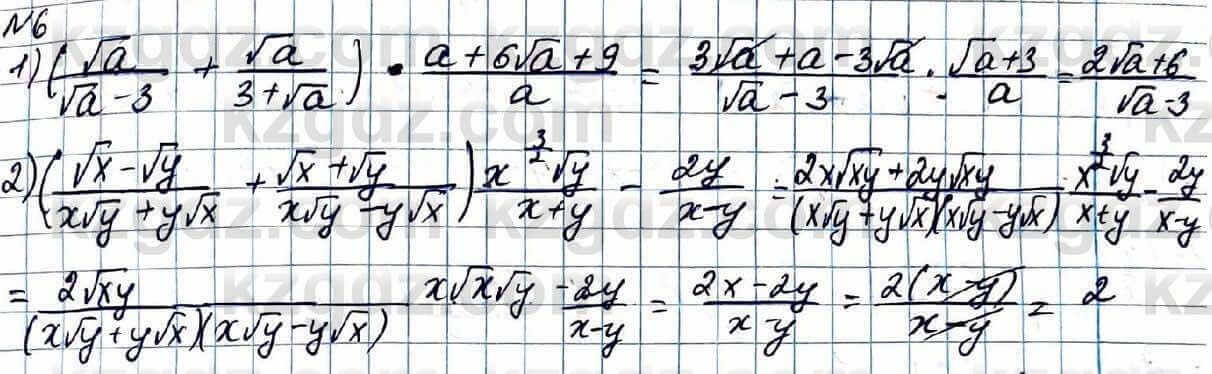 №6
1) (√a/(√a-3) + √a/(3+√a)) · (a+6√a+9)/a = (3√a+a-3√a)/(√a-3) · (√a+3)/a = (2√a+6)/(√a-3)
2) ((√x-√y)/(x√y+y√x) + (√x+√y)/(x√y-y√x)) x^(3/2)√y/(x+y) - 2y/(x-y) = (2x√xy+2y√xy)/((x√y+y√x)(x√y-y√x)) · x^(3/2)√y/(x+y) - 2y/(x-y)
= 2√xy/((x√y+y√x)(x√y-y√x)) x√x√y - 2y/(x-y) = (2x-2y)/(x-y) = 2(x-y)/(x-y) = 2
kzgdz.com